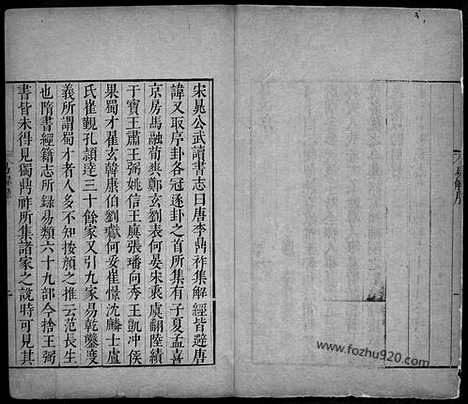 宋晁公武讀書志曰唐李鼎祚集解經皆避唐
諱又取序卦各冠逐卦之首所集有子夏孟喜
京房馬融荀爽鄭玄劉表何晏宋衷虞翻陸績
干寶王肅王弼姚信王廙張璠向秀王凱冲侯
果蜀才翟玄韓康伯劉瓛何妥崔憬沈驎士盧
氏崔覲孔穎逹三十餘家又引九家易乾鑿度
義所謂蜀才者人多不知按顏之推云范長生
也隋書經籍志所錄易類六十九部今捨王弼
書皆未得見獨鼎祚所集諸家之說時可見其
www.fozhu920.com